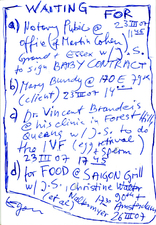 WAITING FOR
a) Notary Public @ 23 III 07 11 45
office of Martin Cohen
Grand & ESSEX w/ J.S.
to sign BABY CONTRACT
b) Mary Bundy @ 170 E 79th
(client) 23 III 07 14
c) Dr. Vincent Brandeis
@ his clinic in Forest Hills
Queens w/ J.S. to do
the IVF (egg retrieval, sperm)
23 III 07 17 45
d) for FOOD @ SAIGON Grill
w/ J.S., Christine
(et al) Nollermeyer 90th & Amsterdam
26 III 07